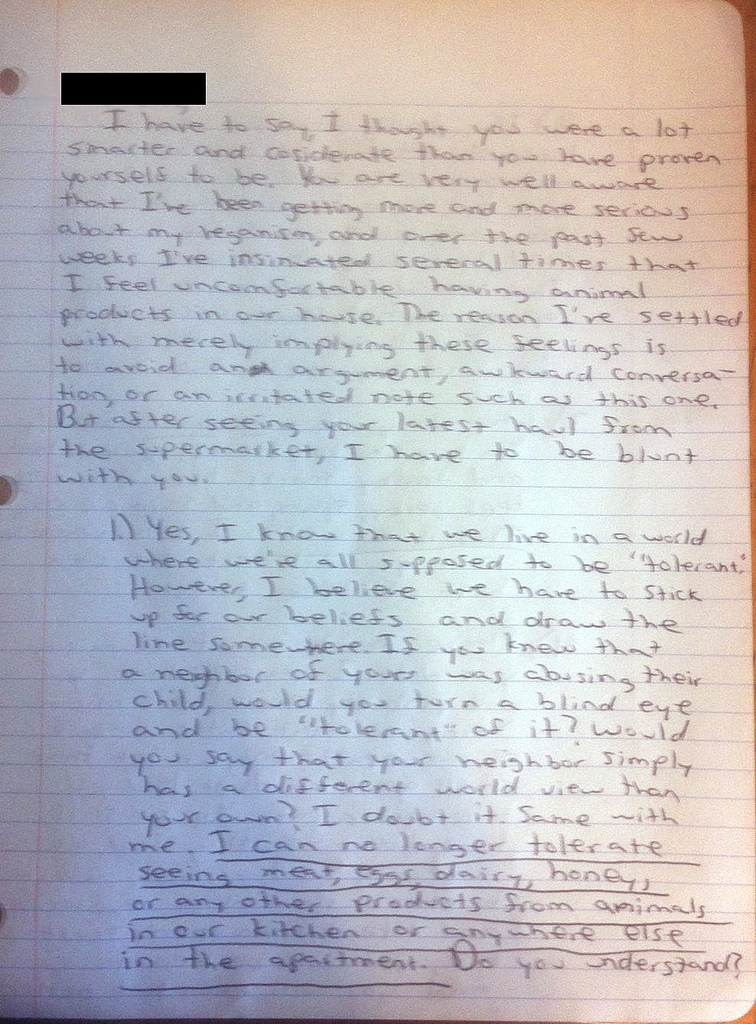 I have to say, I thought you were a lot
smarter and cosiderate than you have proven
yourself to be. You are very well aware
that I've been getting more and more serious
about my veganism, and over the past few
weeks I've insinuated several times that
I feel uncomfortable having animal
products in our house. The reason I've settled
with merely implying these feelings is
to avoid an argument, awkward conversa-
tion, or an irritated note such as this one.
But after seeing your latest haul from
the supermarket, I have to be blunt
with you.
1.) Yes, I know that we live in a world
where we're all supposed to be "tolerant."
However, I believe we have to stick
up for our beliefs and draw the
line somewhere. If you knew that
a neighbor of yours was abusing their
child, would you turn a blind eye
and be "tolerant" of it? Would
you say that your neighbor simply
has a different world view than
your own? I doubt it. Same with
me. I can no longer tolerate
seeing meat, eggs, dairy, honey,
or any other products from animals
in our kitchen or anywhere else
in the apartment. Do you understand?